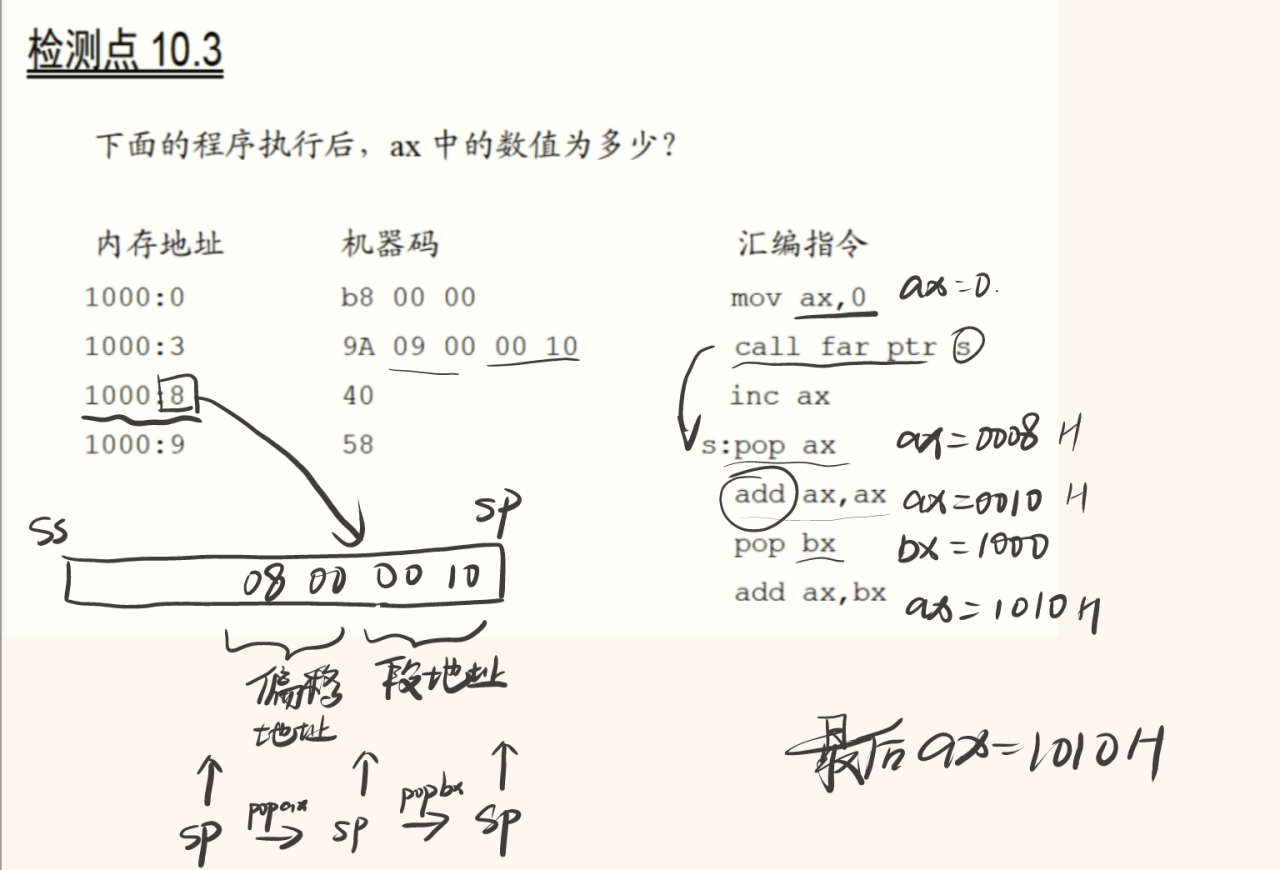 检测点 10.3
下面的程序执行后，ax 中的数值为多少？
内存地址 机器码 汇编指令
1000:0 b8 00 00 mov ax,0 ax=0.
1000:3 9A 09 00 00 10 call far ptr s
1000:8 40 inc ax
1000:9 58 s:pop ax ax=0008 H
add ax,ax ax=0010 H
pop bx bx=1000
add ax,bx ax=1010H
SS SP
08 00 00 10
偏移地址 段地址
SP pop ax SP pop bx SP
最后 ax=1010H